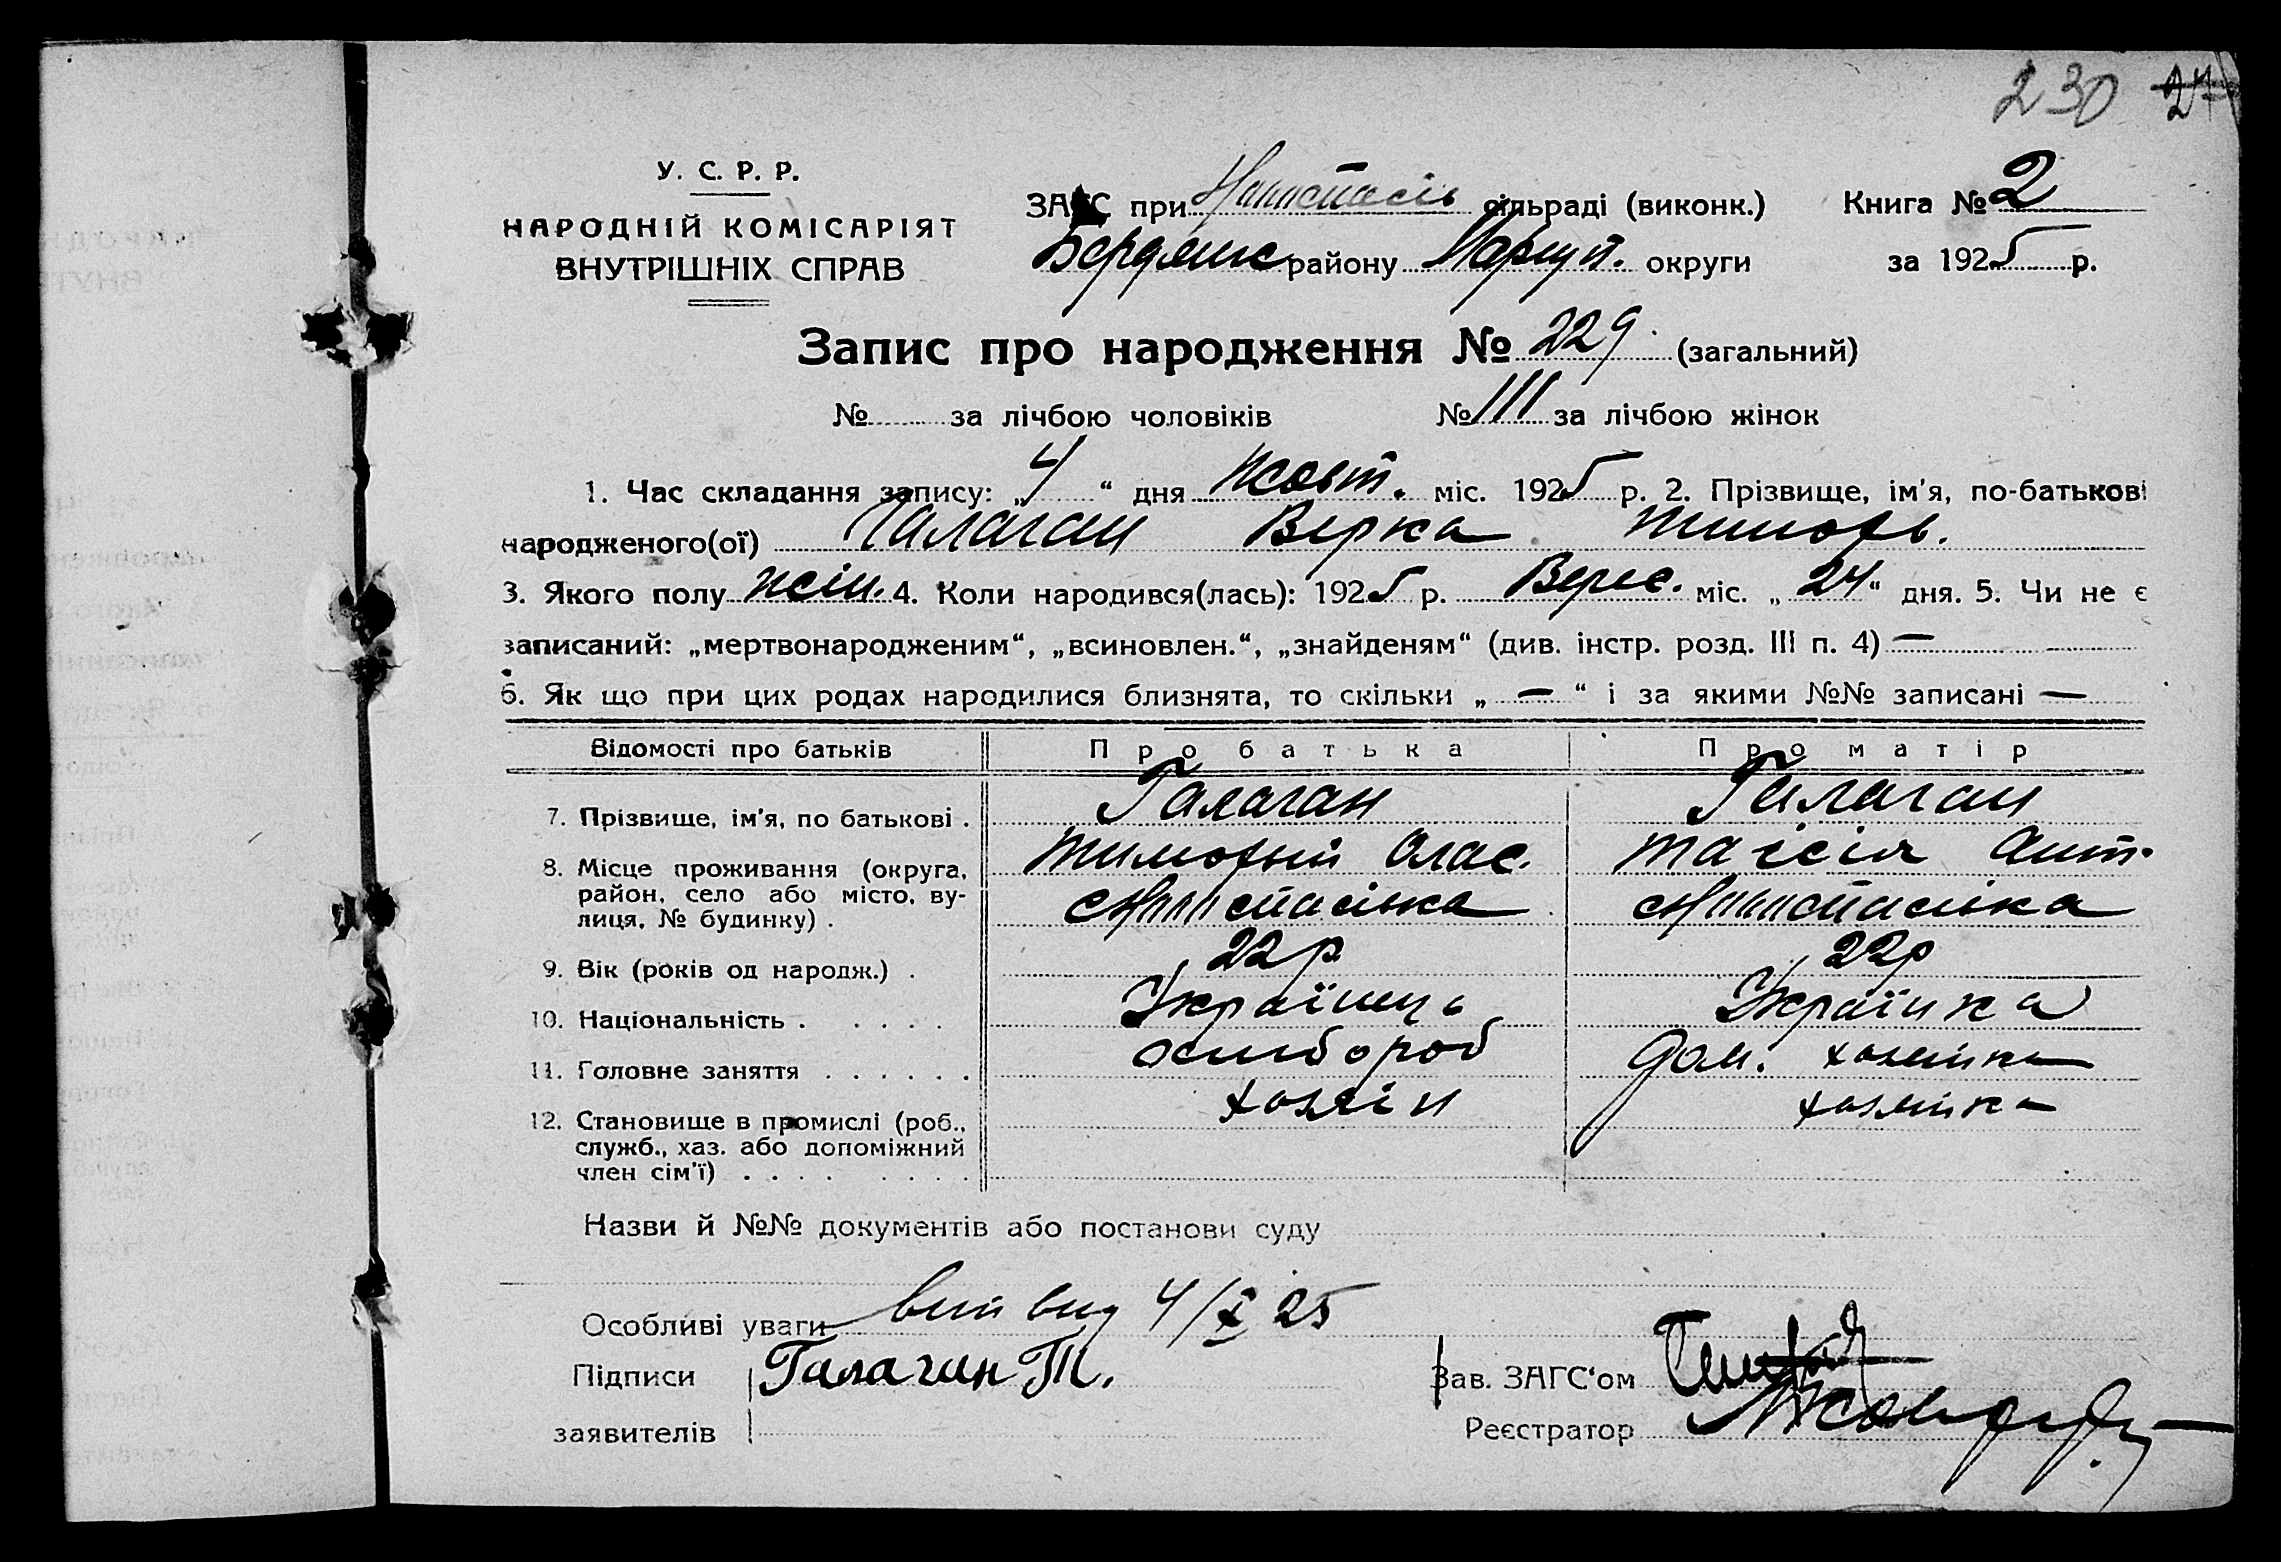 230 24
У. С. Р. Р.
НАРОДНІЙ КОМІСАРІЯТ
ВНУТРІШНІХ СПРАВ
ЗАГС при сільраді (виконк.) Книга № 2
Бердянс району Маріуп. округи за 1925 р.
Запис про народження № 229 (загальний)
№ за лічбою чоловіків № 111 за лічбою жінок
1. Час складання запису: „4“ дня жовт. міс. 1925 р. 2. Прізвище, ім'я, по-батькові
народженого(ої) Галаган Вірка Тимофь.
3. Якого полу жін. 4. Коли народився(лась): 1925 р. Верес. міс. „24“ дня. 5. Чи не є
записаний: „мертвонародженим“, „всиновлен.“, „знайденям“ (див. інстр. розд. III п. 4) —
6. Як що при цих родах народилися близнята, то скільки „ — “ і за якими №№ записані —
Відомості про батьків Про батька Про матір
7. Прізвище, ім'я, по батькові . Галаган Галаган
Тимофьій Олас. Таісія Ант.
8. Місце проживання (округа,
район, село або місто, ву-
лиця, № будинку) .
9. Вік (років од народж.) . 22 р. 22 р
10. Національність . . . . . Українць Українка
11. Головне заняття . . . . . . хліббороб Дом. хозяйка
12. Становище в промислі (роб., хозяін хозяйка
служб., хаз. або допоміжний
член сім'ї) . . . . . . . .
Назви й №№ документів або постанови суду
Особливі уваги 4/X 25
Підписи Галаган Т. Зав. ЗАГС'ом
заявителів Реєстратор